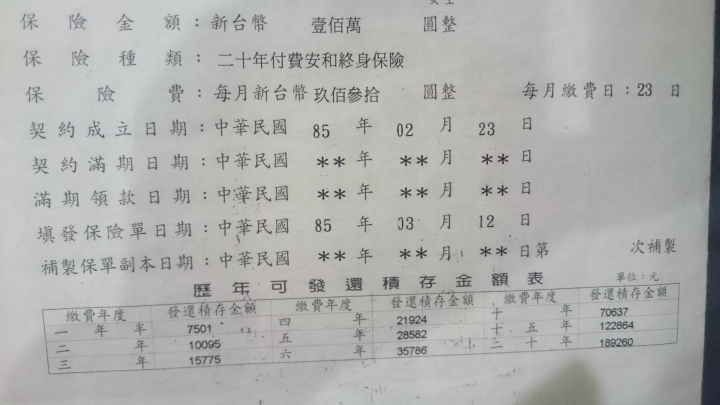 保險金額：新台幣 壹佰萬 圓整
保險種類：二十年付費安和終身保險
保險費：每月新台幣玖佰參拾 圓整 每月繳費日：23 日
契約成立日期：中華民國 85 年 02 月 23 日
契約滿期日期：中華民國 ** 年 ** 月 ** 日
滿期領款日期：中華民國 ** 年 ** 月 ** 日
填發保險單日期：中華民國 85 年 03 月 12 日
補製保單副本日期：中華民國 ** 年 ** 月 ** 日第 次補製
歷年可發還積存金額表 單位：元
繳費年度 發還積存金額 繳費年度 發還積存金額 繳費年度 發還積存金額
一年半 7501 四年 21924 十年 70637
二年 10095 五年 28582 十五年 122864
三年 15775 六年 35786 二十年 189260